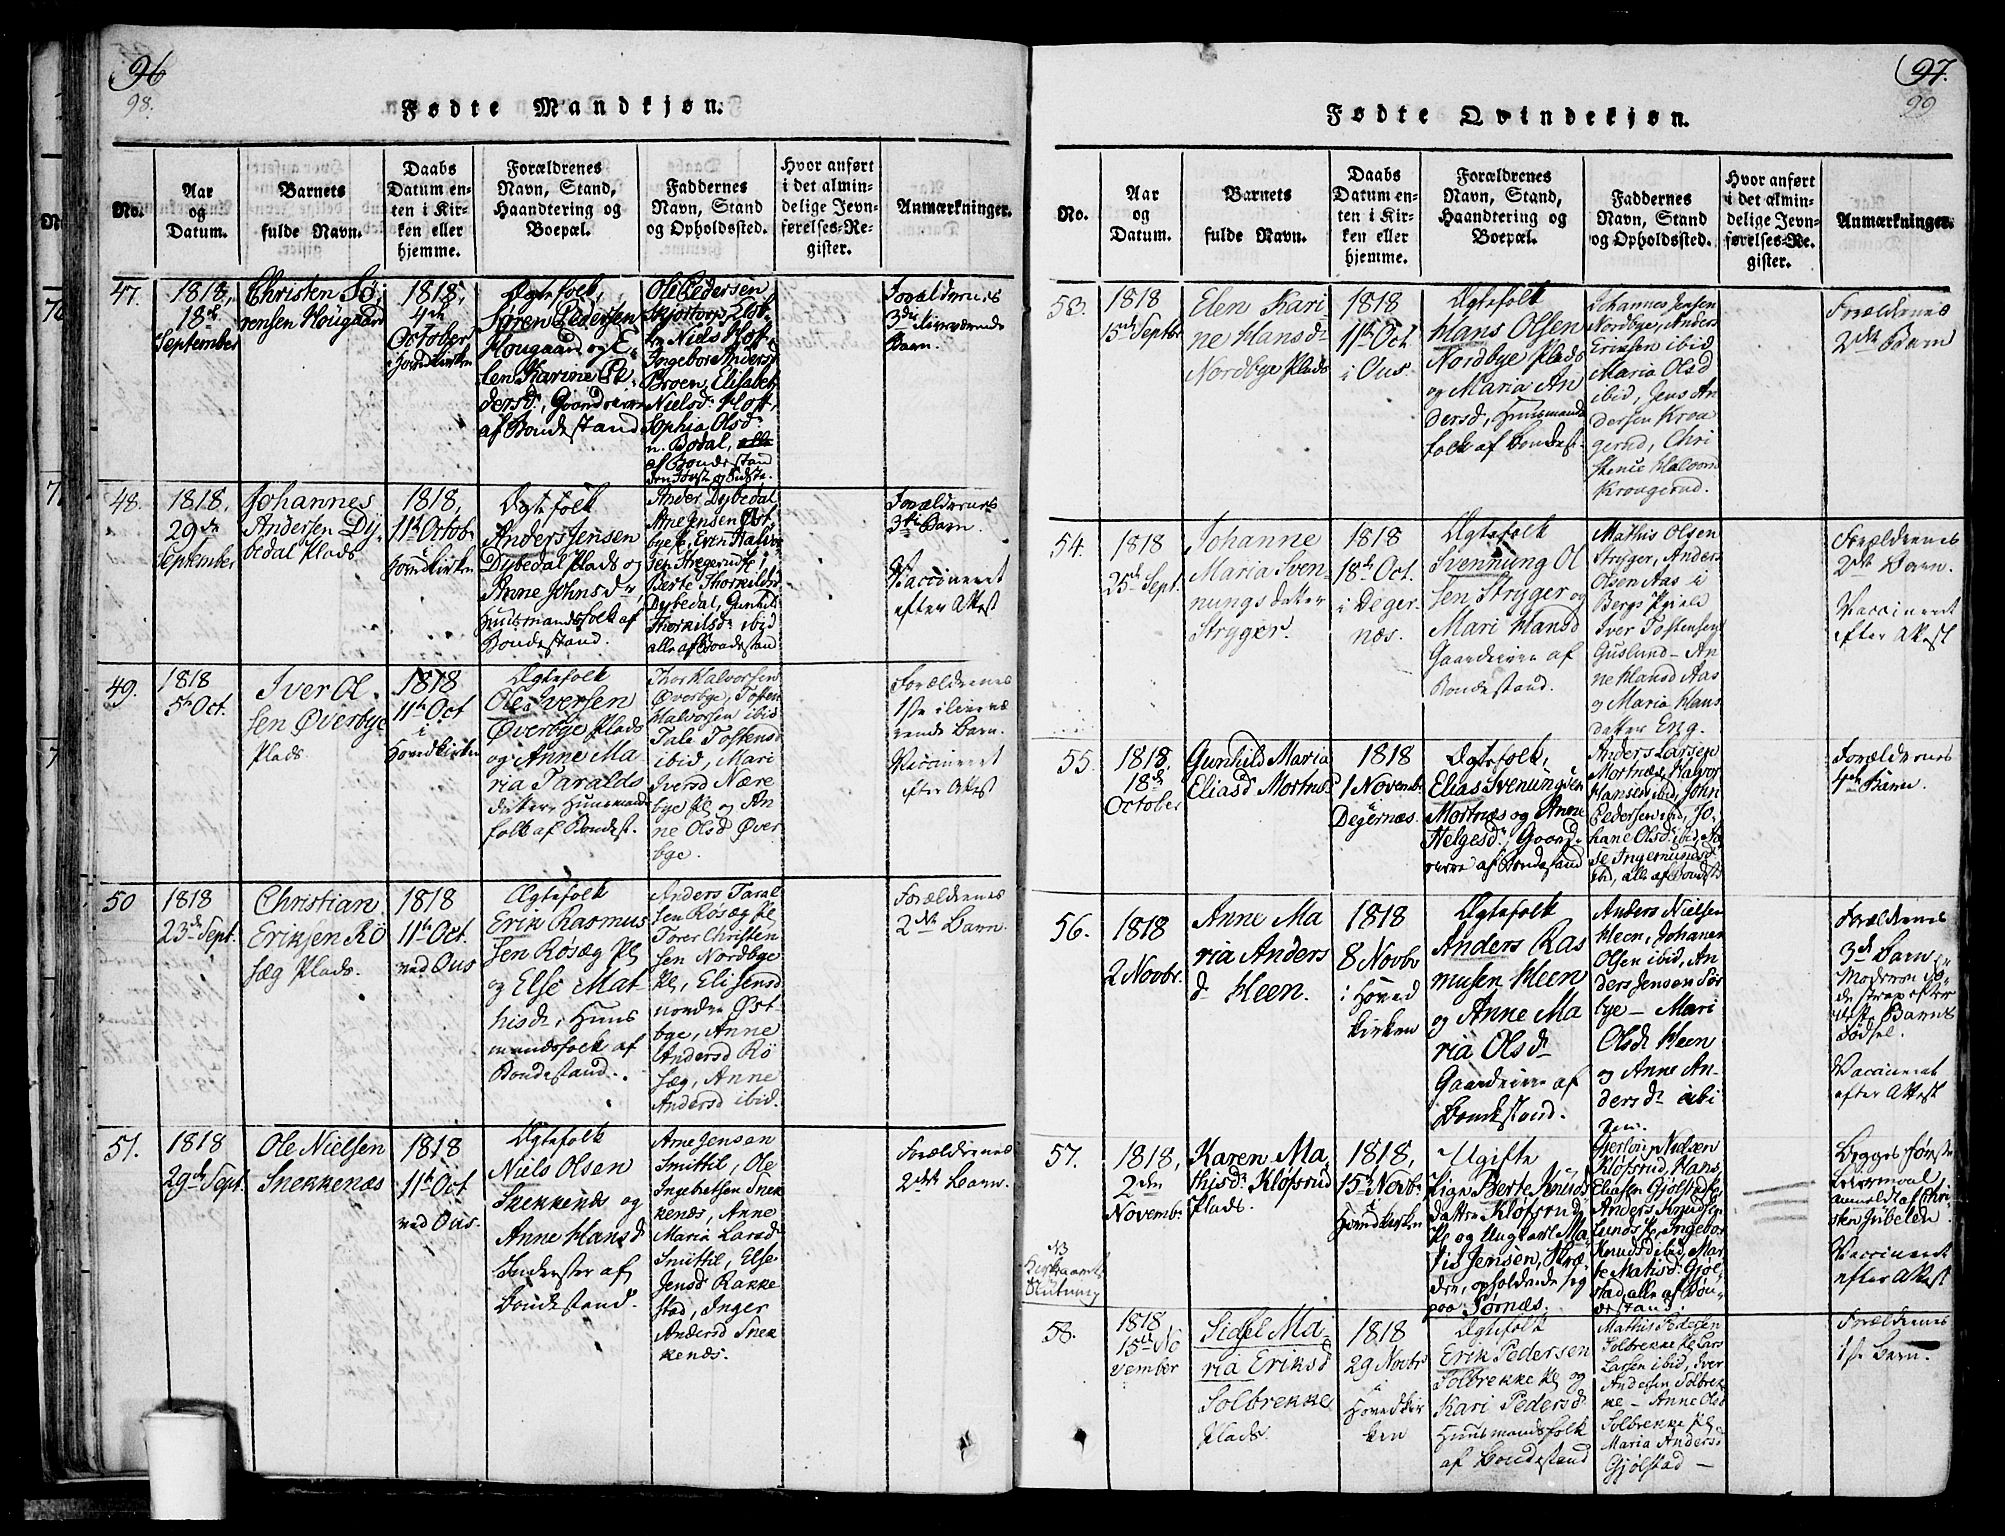 96
98.
Fødte Mandkjøn.
No.
Aar
og
Datum.
Barnets
fulde Navn.
Daabs
Datum en-
ten i Kir-
ken eller
hjemme.
Forældrenes
Navn, Stand,
Haandtering og
Boepæl.
Faddernes
Navn, Stand
og Opholdssted.
Hvor anført
i det almin-
delige Jevn-
førelses-Re-
gister.
Anmærkninger.
47.
1818,
18de
September
Christen Sø-
rensen Hougaard
1818,
4de
October
i Hovedkirken
Ægtefolk,
Søren Pedersen
Hougaard og E-
len Karine Pe-
dersd., Gaardmænd
af Bondestand
Ole Pedersen
Skjørtorp,
Niels Hoff,
Ingeborg Andersd.
Broen, Elisabet
Nielsd. Hoff,
Sophia Olsd.
n. Bødal,
af Bondestand
Forældrenes
3die
Barn.
48.
1818,
29de
September
Johannes
Andersen Dy-
bedal Plads
1818,
11te Octob.
i
Hovedkirken
Ægtefolk
Anders Jensen
Dybedal Plads og
Anne Johnsdr.,
Huusmandsfolk af
Bondestand.
Ander Dybedal
Arne Jensen Øst-
bye, Even Halvor-
sen
Berte Thorkildsd.
Dybedal, Gunhil
Thorkilsd. ibid
alle af Bondestand
Forældrenes
3die Barn.
Vaccineret
efter Attest
49.
1818
5te Oct.
Iver Ol-
sen Øverbye
Plads
1818
11te Oct
i
Hovedkirken
Ægtefolk
Ole Iversen
Øverbye Plads
og Anne Ma
ria Taralds
datter, Huusmands
folk af Bondest.
Thor Halvorsen
Øverbye, Tosten
Halvorsen ibid
Tale Tostensd
ibid, Mari
Iversd Nære
bye Pl og An
ne Olsd Øver
bye.
Forældrenes
1ste
Barn.
Vaccineret
efter Attest
50
1818
23de Sept.
Christian
Eriksen Rø
sæg Plads.
1818
11te Oct.
ved Ous
Ægtefolk
Erik Rasmus
sen Røsæg Pl
og Else Mat-
hisdr, Huus
mandsfolk af
Bondestand.
Anders Taral
sen Røsæg Pl
Torer Christen
sen Nordbye
Pl, Eli Jensd
nordre Øst
bye, Anne
Andersd Rø
sæg, Anne
Andersd ibid.
Forældrenes
2det Barn.
51.
1818
29de Sept.
Ole Nielsen
Snekkenæs
1818
11te Oct
ved Ous.
Ægtefolk
Niels Olsen
Snekkenæs og
Anne Hansd
Inderster af
Bondestand.
Arne Jensen
Smittil, Ole
Ingebretsen Snek
kenæs, Anne
Maria Larsd
Smittil, Else
Jensd Rakke
stad, Inger
Andersd Snek
kenæs.
Forældrenes
2det Barn.
97.
99
Fødte Qvindekjøn.
No.
Aar
og
Datum.
Barnets
fulde Navn.
Daabs
Datum en-
ten i Kir-
ken eller
hjemme.
Forældrenes
Navn, Stand,
Haandtering og
Boepæl.
Faddernes
Navn, Stand
og Opholdssted.
Hvor anført
i det almin-
delige Jevn-
førelses-Re-
gister.
Anmærkninger.
53.
1818
15de Septbr
Elen Kari
ne Hansdr
Nordbye Plads
1818
11te Oct
i Ous.
Ægtefolk
Hans Olsen
Nordbye Plads
og Maria An
dersd, Huusmands
folk af Bondest.
Johannes Jensen
Nordbye, Anders
Eriksen ibid
Maria Olsd
ibid, Jens An
dersen Kroa
gerud, Chri
stence Halvorsd
Krougerud.
Forældrenes
2det Barn
54.
1818
25de Sept.
Johanne
Maria Sven-
nungs datter
Stryger.
1818
18de Oct.
i Deger-
næs.
Ægtefolk
Svennung Ol
sen Stryger og
Mari Hansd
Gaardmænd af
Bondestand.
Mathis Olsen
Stryger, Anders
Olsen Aas i
Bergs Pgield
Iver Tostensen
Guslund - An
ne Hansd Aas
og Maria Hans
datter Eng.
Forældrenes
2det Barn.
Vaccineret
efter Attest
55.
1818,
18de
October
Gunhild Maria
Eliasd Mortnæs.
1818
1 Novemb.
i
Degernæs.
Ægtefolk,
Elias Svenungsen
Mortnæs og Anne
Helgesd., Gaard-
mænd af Bondestand
Anders Larsen
Mortnæs, Halvor
Hansen ibid, John
Pedersen ibid, Jo-
hane Olsd. ibid,
Ingemundsd
ibid, alle af Bondest.
Forældrenes
4de Barn.
56.
1818
2 Novbr.
Anne Ma
ria Anders
d. Heen.
1818
8 Novbr
i Hoved
kirken
Ægtefolk
Anders Ras
musen Heen
og Anne Ma
ria Olsdr
Gaardmænd af
Bondestand.
Anders Nielsen
Heen, Johanes
Olsen ibid, An
ders Jensen Sør
bye - Mari
Olsdr Heen
og Anne An
dersdr ibi
dem.
Forældrenes
3de Barn
Moderen
døde strax efter
dette Barns
Fødsel.
Vaccineret
efter Attest
57.
1818,
2den
Novembr.
Karen Ma-
thisdr. Kløfsrud
Plads.
1818,
15de Novbr.
i
Hovedkirken
Ugifte
Pige Berte Jensd
datter Kløfsrud
Pl og Ungkarl Ma-
this Jensen,
opholdende sig
paa Sørnæs.
Nielsen
Kløfsrud, Hans
Eliasen Gjølstad
Anders Knudsen
Lund Pl, Ingebor
Knudsd ibid, Mar-
te Mathisd. Gjøl-
stad, alle af Bon-
destand.
Begges første
Leiermaal
anmeldt af Chri-
sten Jubelen.
Vaccineret
efter Attest
58.
1818
15de No
vember
Sidsel Ma-
ria Eriksd
Solbrekke
Plads.
1818
29 Novbr
i
Hovedkir
ken
Ægtefolk
Erik Pedersen
Solbrekke Pl og
Kari Pedersd
Huusmandsfolk
af Bondestand
Mathis Pedersen
Solbrekke Pl Lars
Larsen ibid, Iver
Andersen Solbrek
ke - Anne Olsd
Solbrekke Pl
Maria Andersd
Gjølstad -
Forældrenes
1ste Barn.